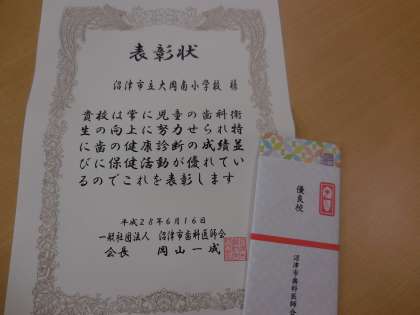 表彰状
沼津市立大岡南小学校 様
貴校は常に児童の歯科衛
生の向上に努力せられ特
に歯の健康診断の成績並
びに保健活動が優れてい
るのでこれを表彰します
平成28年6月16日
一般社団法人 沼津市歯科医師会
会長 岡山一成
優良校
沼津市歯科医師会